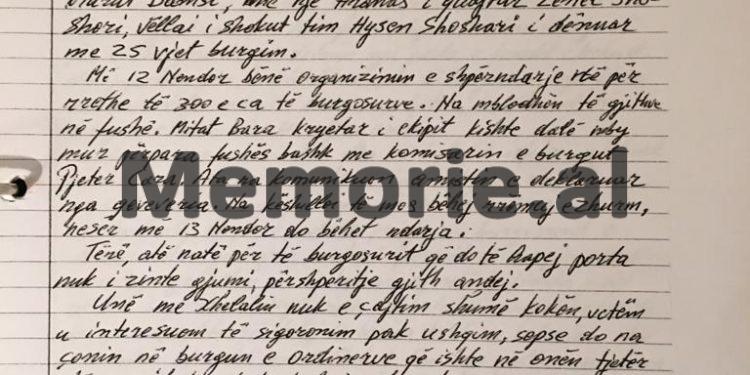 i quajtur Zenel Sho-
shori, vëllai i shokut tim Hysen Shoshari i dënuar
me 25 vjet burgim.
Më 12 Nendor bënë organizimin e shpërndarje për
rrethe të 300 e ca të burgosurve. Na mblodhën të gjithve
në fushë. Mitat Bara kryetar i ekipit kishte dalë mby
mur përpara fushës bashk me komisarin e burgut
Pjeter Ata na komunikuon amistin e deklaruar
nga goveveria. Na këshilloi të mos bëhej rremuj e zhurm,
neser më 13 Nendor do bëhet ndarja.
Tërë, atë natë për të burgosurit që do të hapej porta
nuk i zinte gjumi, përshperitje gjith andej.
Unë me Xhelalin nuk e çajtim shumë kokën, vetëm
u interesuem të sigoronim pak ushqim, sepse do na
çonin në burgun e ordinerve që ishte në anën tjetër
Memorie.al